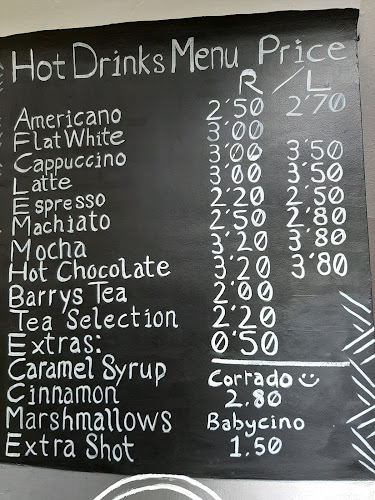 Hot Drinks Menu Price
R / L
Americano 2'50 2'70
Flat White 3'00
Cappuccino 3'00 3'50
Latte 3'00 3'50
Espresso 2'20 2'50
Machiato 2'50 2'80
Mocha 3'20 3'80
Hot Chocolate 3'20 3'80
Barrys Tea 2'00
Tea Selection 2'20
Extras: 0'50
Caramel Syrup
Cinnamon
Marshmallows
Extra Shot
Cortado
2.80
Babycino
1.50